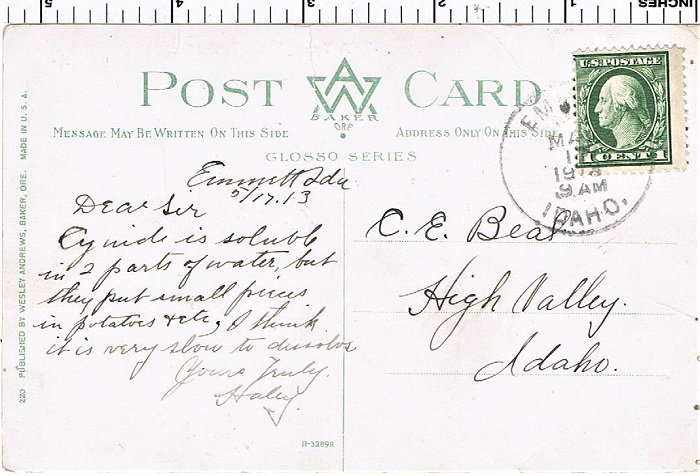 5 4 3 2 1 INCHES
POST CARD
AWA
BAKER
ORE
MESSAGE MAY BE WRITTEN ON THIS SIDE
ADDRESS ONLY ON THIS SIDE
GLOSSO SERIES
U.S. POSTAGE
1 CENT 1
19
9 AM
IDAHO.
Emmett Ida
5/17.13
Dear Sir
Cynide is soluble
in 2 parts of water, but
they put small pieces
in potatoes & etc, I think
it is very slow to dissolve
Yours Truly.
Haley
C. E. Beal
High Valley.
Idaho.
220 PUBLISHED BY WESLEY ANDREWS, BAKER, ORE. MADE IN U.S.A.
R-32898